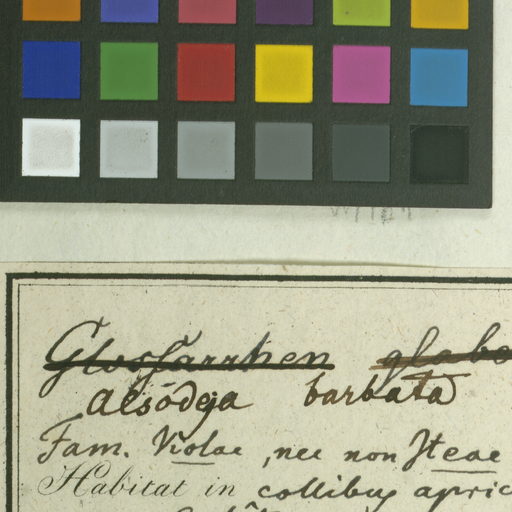 Glossarrhen
alsodeja barbata
Fam. Violae, nec non Iteae
Habitat in collibus apric